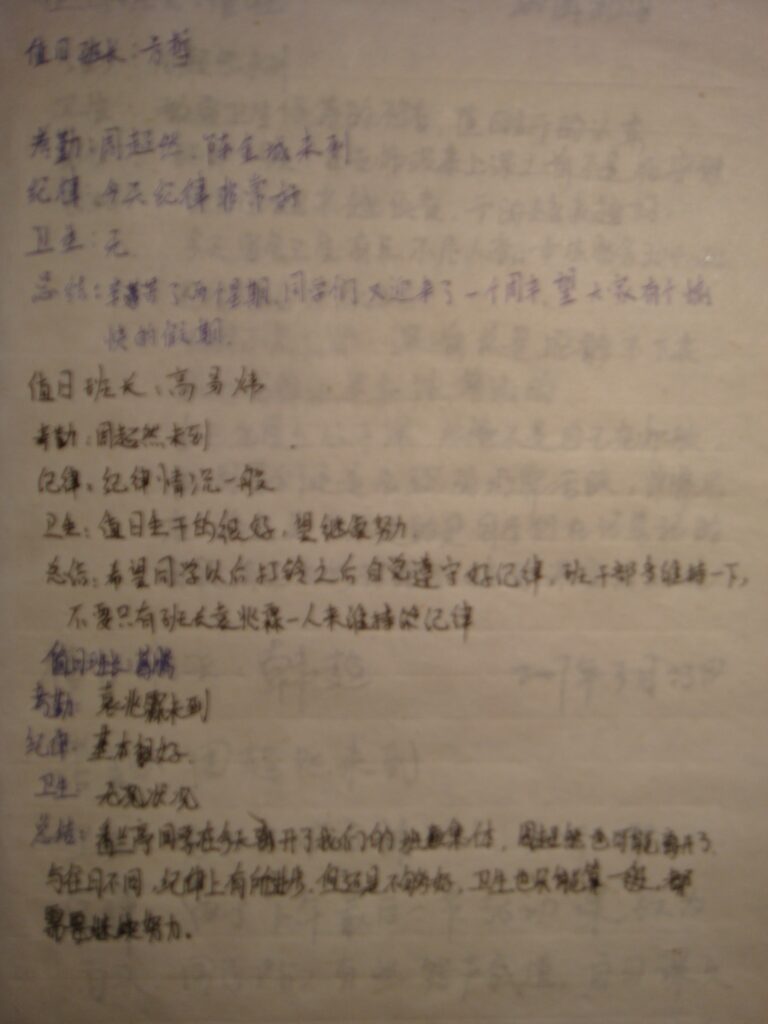 值日班长：方哲
考勤：周超然、陈金城未到
纪律：今天纪律非常好
卫生：无
总结：了一个星期，同学们又迎来了一个周末，望大家有个愉
快的假期。
值日班长：高易炜
考勤：周超然未到
纪律：纪律情况一般
卫生：值日生干的很好，望继续努力。
总结：希望同学以后打铃之后自觉遵守好纪律，班干部多维持一下，
不要只有班长袁兆霖一人来维持的纪律
值日班长
考勤：袁兆霖未到
纪律：基本良好。
卫生：无况状况
总结：同学在今天离开了我们的班级集体，周超然也可能离开了
与往日不同，纪律上有所进步，但还是不够好，卫生也只能算一般，都
需要继续努力。